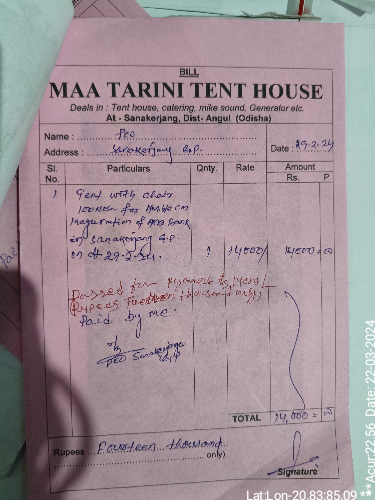 BILL
MAA TARINI TENT HOUSE
Deals in : Tent house, catering, mike sound, Generator etc.
At - Sanakerjang, Dist- Angul (Odisha)
Name : PEO
Address : Sanakerjang G.P.
Date : 29-2-24
Sl. No. Particulars Qnty. Rate Amount Rs. P
1 Tent with chair
100Nos. for
of
in Sanakerjang G.P.
on dt 29-2-24. 1 14000/ 14000=00
Passed for Payment Rs 14000/
(Rupees Fourteen thousand only)
Paid by me
PEO Sanakerjang
G.P
TOTAL 14,000=00
Rupees Fourteen thousand only)
Signature
Lat:Lon-20.83:85.09
**Acur:22.56 Date: 22-03-2024